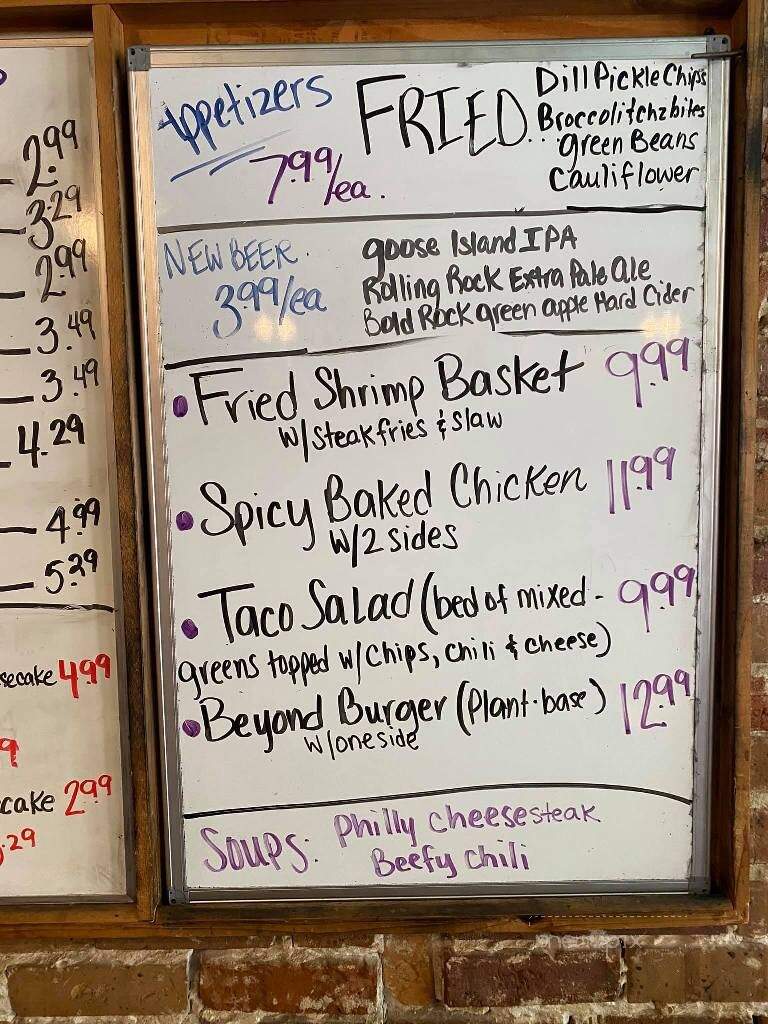 2.99
3.29
2.99
3.49
3.49
4.29
4.99
5.29
secake 4.99
9
cake 2.99
.29
Appetizers
7.99/ea.
FRIED...
Dill Pickle Chips
Broccoli &chz bites
green Beans
Cauliflower
NEW BEER.
3.99/ea
goose Island IPA
Rolling Rock Extra Pale Ale
Bold Rock green apple Hard Cider
• Fried Shrimp Basket 9.99
w/steak fries & slaw
• Spicy Baked Chicken 11.99
w/2 sides
• Taco Salad (bed of mixed - 9.99
greens topped w/chips, chili & cheese)
• Beyond Burger (Plant-base) 12.99
w/one side
Soups: Philly cheesesteak
Beefy chili